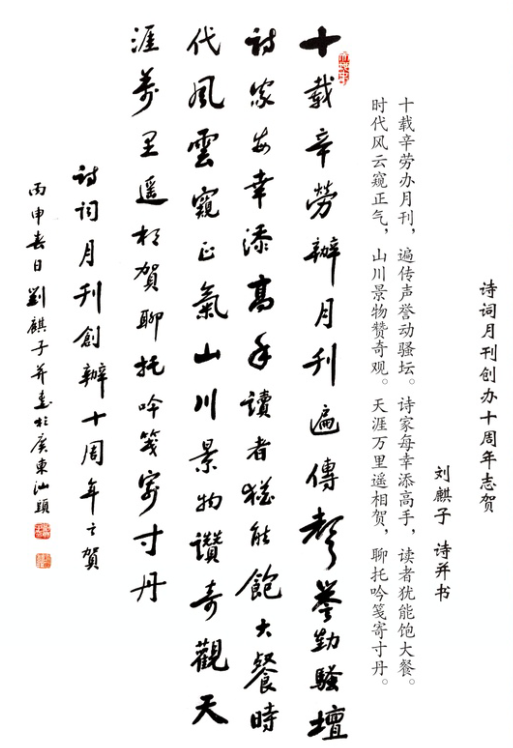 诗词月刊创办十周年志贺
刘麒子 诗并书
十载辛劳办月刊，遍传声誉动骚坛。诗家每幸添高手，读者犹能饱大餐。
时代风云窥正气，山川景物赞奇观。天涯万里遥相贺，聊托吟笺寄寸丹。
十載辛勞辦月刊遍傳聲譽動騷壇
詩家每幸添高手讀者猶能飽大餐時
代風雲窺正氣山川景物讚奇觀天
涯萬里遥相賀聊托吟箋寄寸丹
詩詞月刊創辦十周年之賀
丙申春日劉麒子并書於廣東汕頭